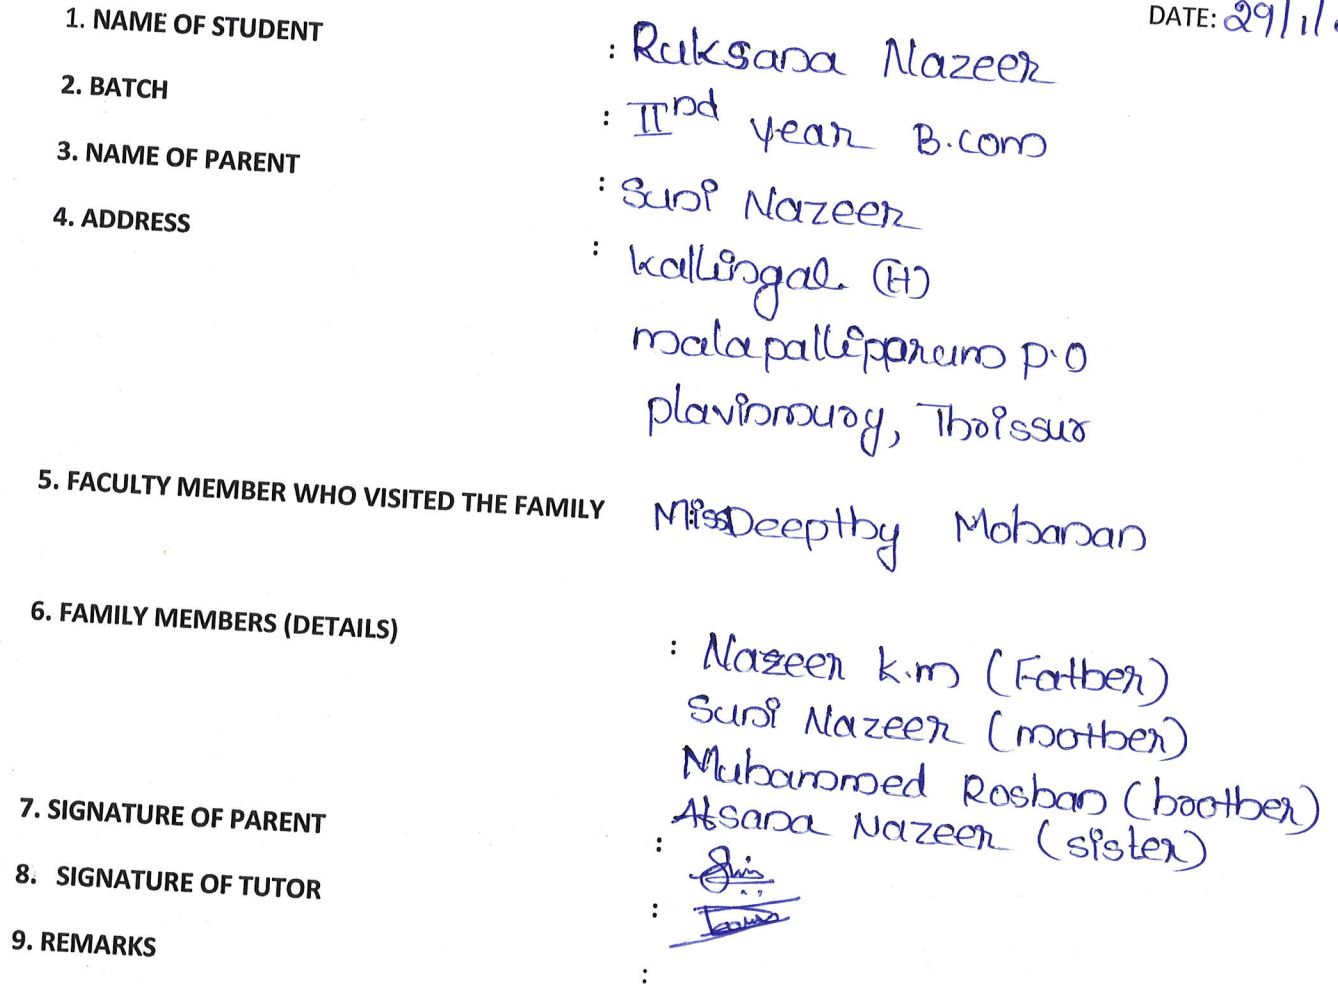 DATE: 29/1/
1. NAME OF STUDENT : Ruksana Nazeer
2. BATCH : IInd year B.com
3. NAME OF PARENT : Suni Nazeer
4. ADDRESS : Kallingal (H)
malapallippuram P.O
plavinmury, Thrissur
5. FACULTY MEMBER WHO VISITED THE FAMILY Miss Deepthy Mohanan
6. FAMILY MEMBERS (DETAILS) : Nazeer K.m (Father)
Suni Nazeer (mother)
Muhammed Roshan (brother)
Afsana Nazeer (sister)
7. SIGNATURE OF PARENT :
8. SIGNATURE OF TUTOR :
9. REMARKS :